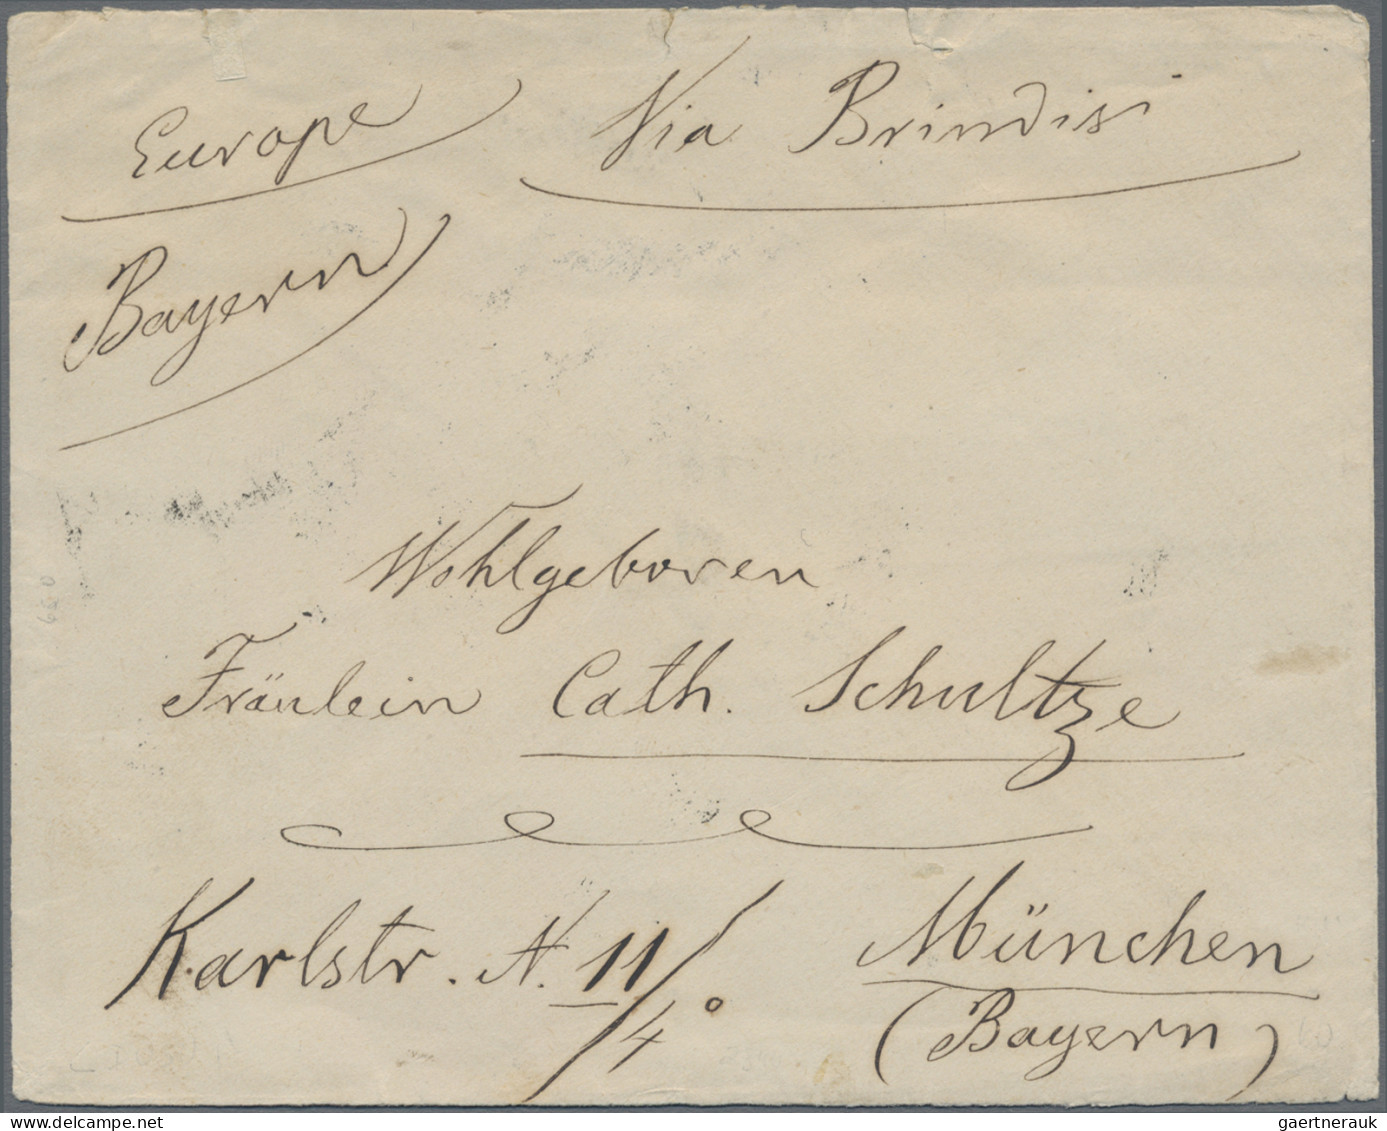 Europe Via Brindisi
Bayern
Wohlgeboren
Fräulein Cath. Schultze
Karlstr. N. 11/4°
München
(Bayern)
gaertnerauk